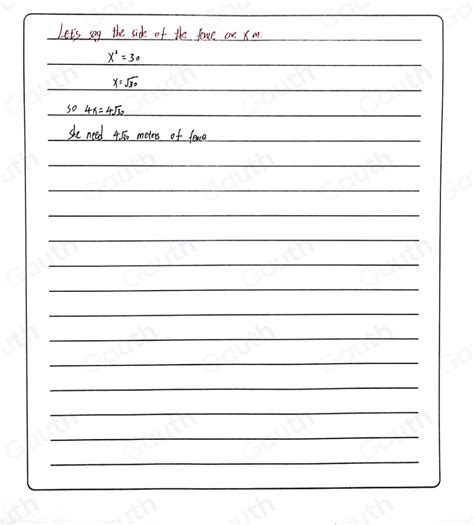 Let's say the side of the fence are x m.
x² = 30
x = √30
so 4x = 4√30
she need 4√30 meters of fence
Gauth